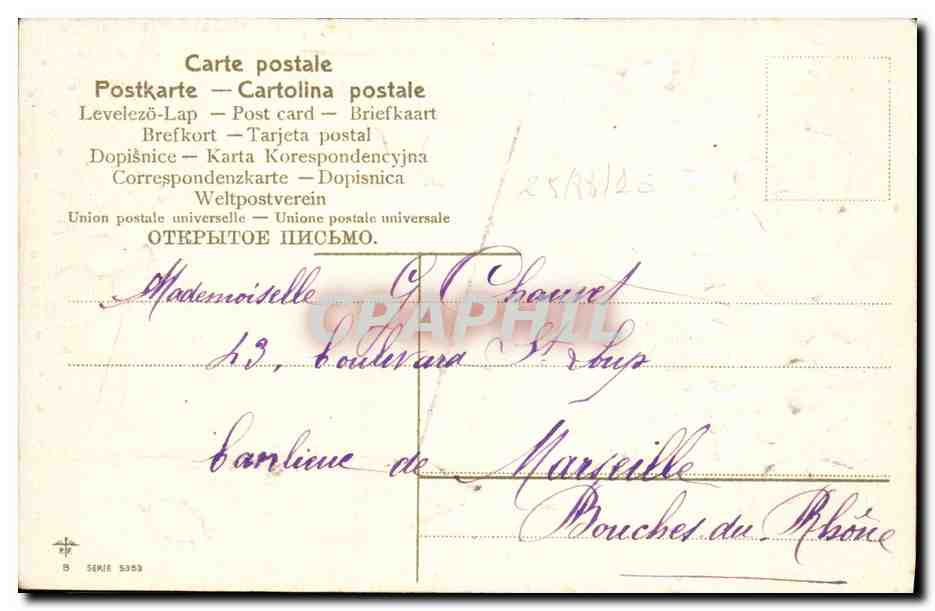 Carte postale
Postkarte — Cartolina postale
Levelezö-Lap — Post card — Briefkaart
Brefkort — Tarjeta postal
Dopišnice — Karta Korespondencyjna
Correspondenzkarte — Dopisnica
Weltpostverein
Union postale universelle — Unione postale universale
ОТКРЫТОЕ ПИСЬМО.
Mademoiselle G Chauvet
43, boulevard St Loup
banlieue de Marseille
Bouches du Rhône
CPAPHIL
B SERIE 5353